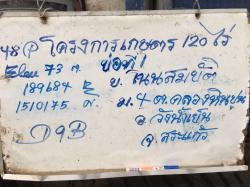 48P โครงการเกษตร 120 ไร่
Elev 73 ม. บ่อที่ 1
189684 E บ. เนินสมบัติ
1510175 N. ม. 4 ต. คลองหินปูน
อ. วังน้ำเย็น
D9B จ. สระแก้ว